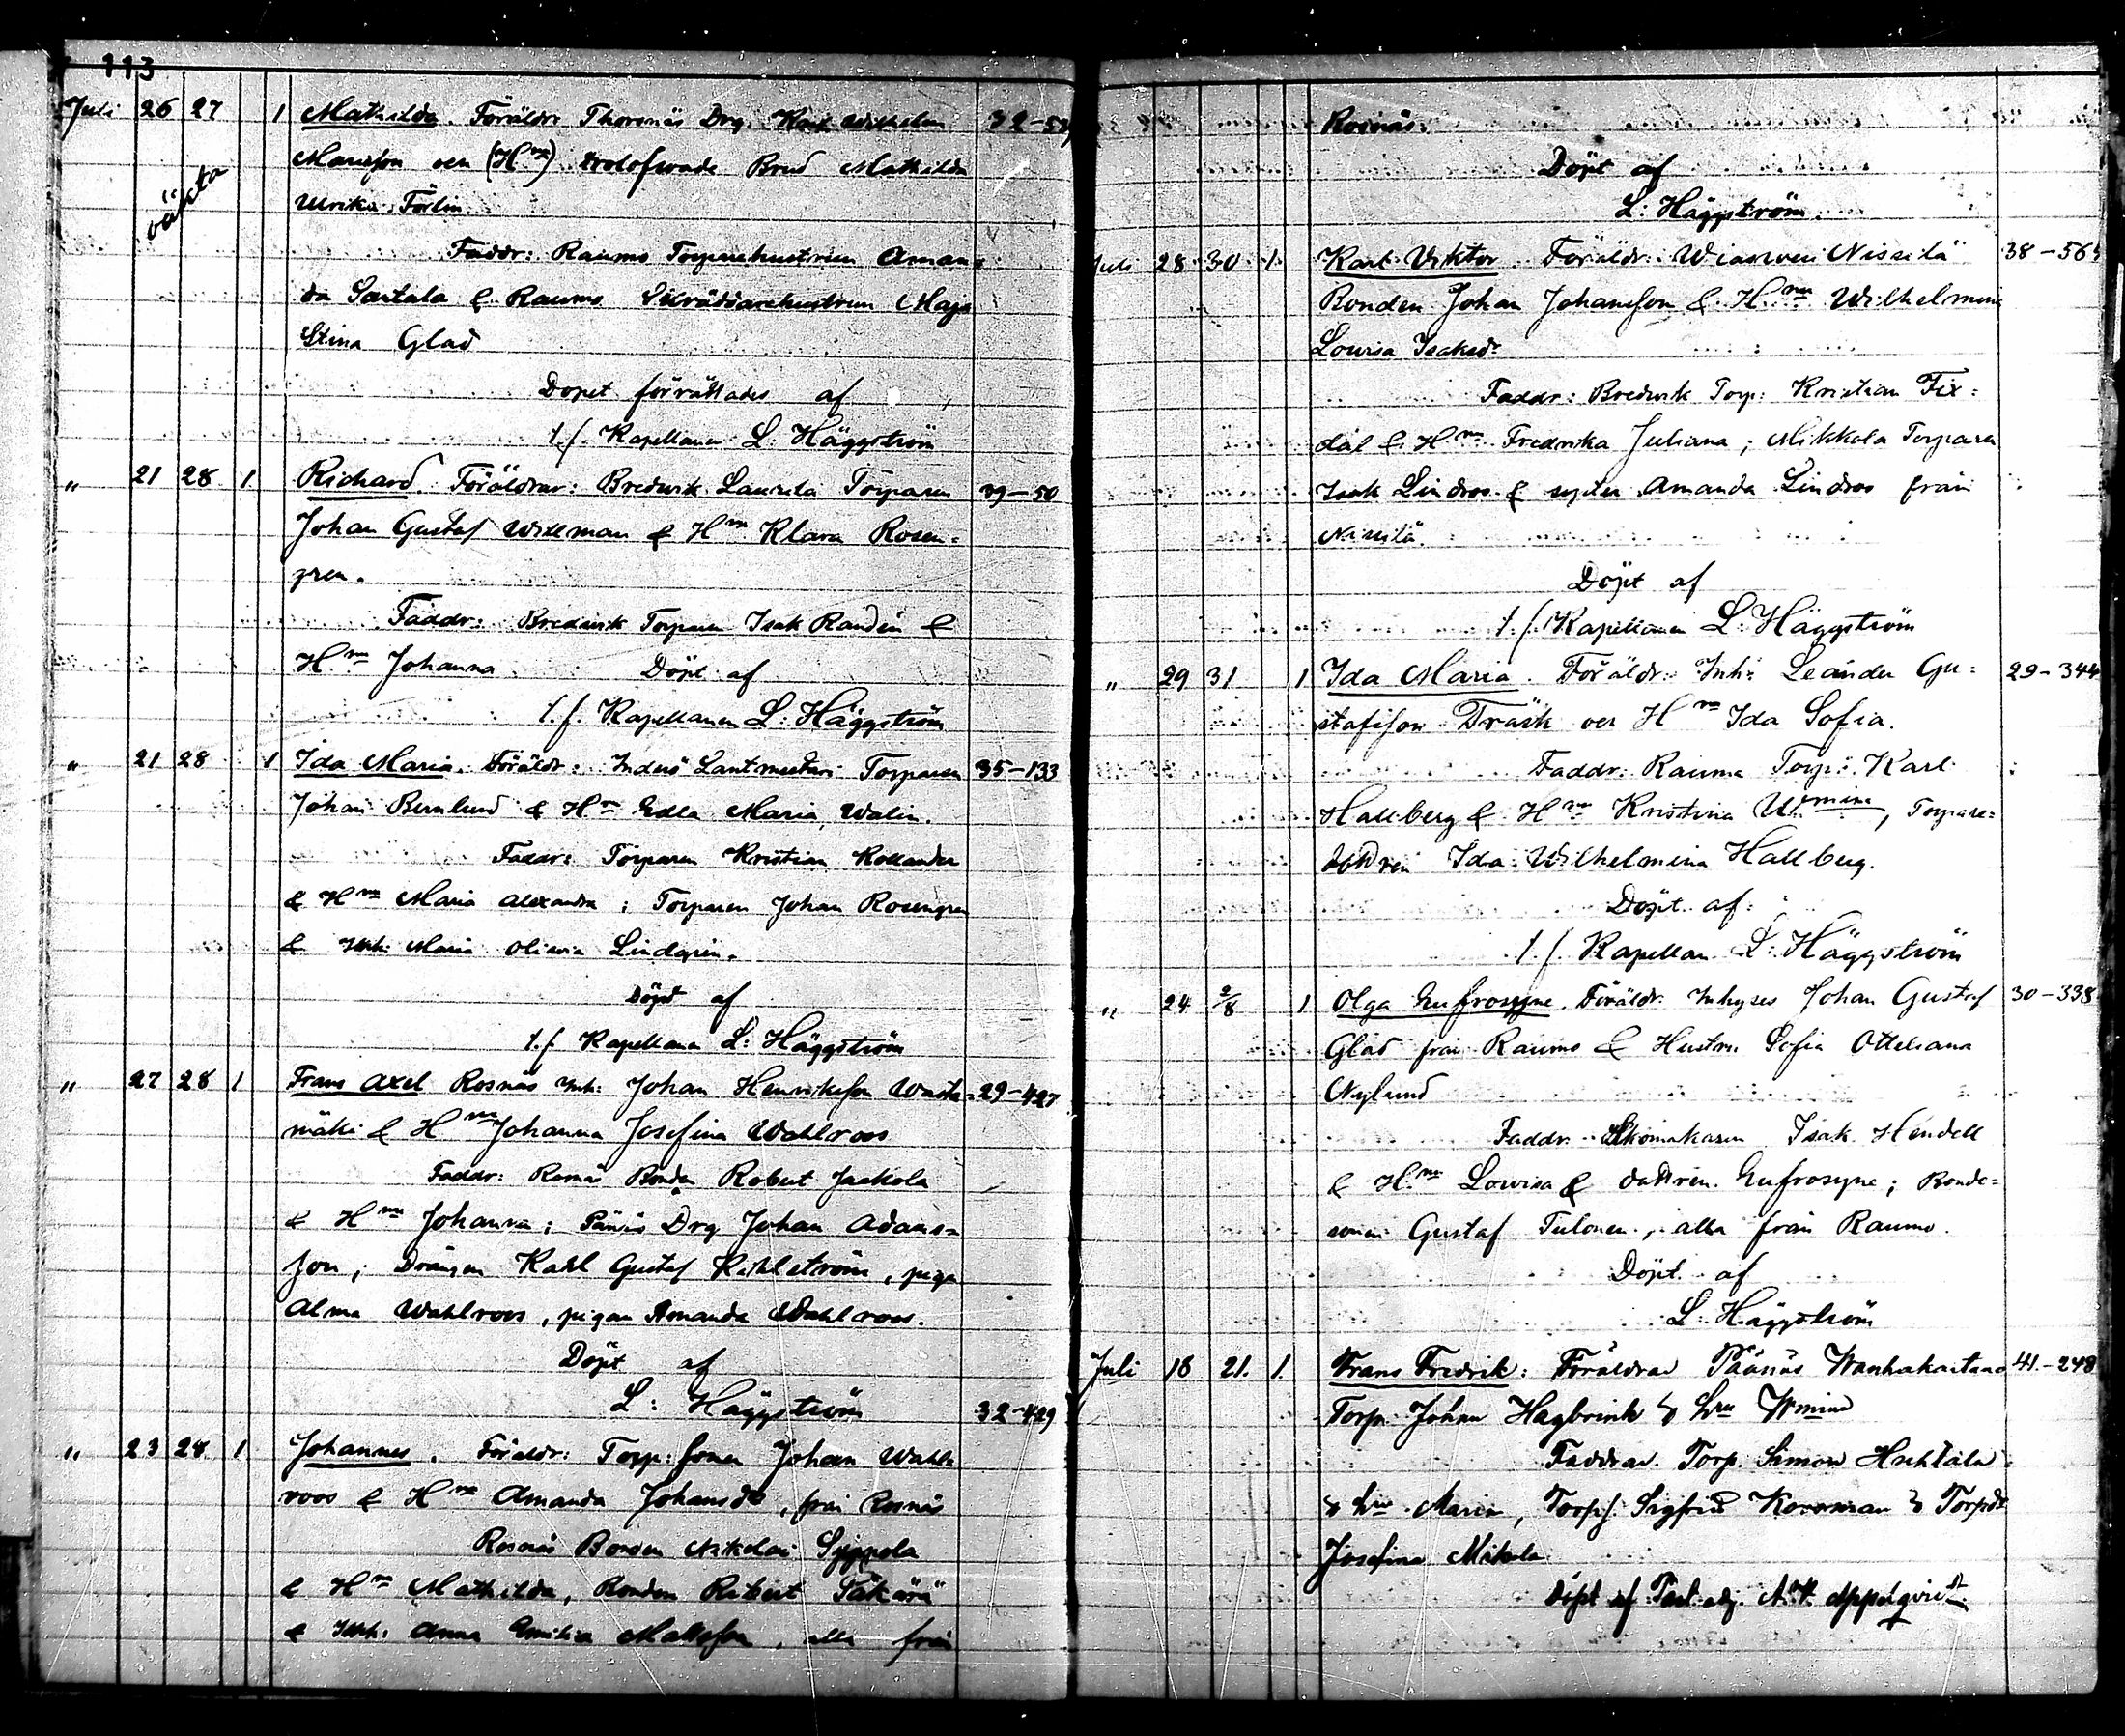 113
Juli 26 27 1 Mathilda. Föräldr: Thorsnäs Drg. Karl Wilhelm 32-
väkta
Mariesson och (Hnn) trolofvade Brud Mathilda
Ulrika Förlin.
Faddr: Raumo Torparehustrun Aman=
da Santala & Raumo hustrun Maja
Stina Glad
Dopet förrättades af
t.f. Kapellanen L: Häggström
" 21 28 1 Richard. Föräldrar: Bredvik Laurila Torparen 39-50
Johan Gustaf Willman & Hnn Klara Rosen=
gren.
Faddr: Bredvik Torparen Isak Randén &
Hnn Johanna Döpt af
t.f. Kapellanen L: Häggström
" 21 28 1 Ida Maria. Föräldr: Inderö Lantmesteri Torparen 35-133
Johan Bernlund & Hnn Edla Maria Walin.
Faddr: Torparen Kristian Kollander
& Hnn Maria Alexandra; Torparen Johan Rosengren
& Inh: Maria Olivia Lindgrén.
Döpt af
t.f. Kapellanen L: Häggström
" 27 28 1 Frans Axel Rosnäs Inh: Johan Henriksson Wasta= 29-427
mäki & Hnn Johanna Josefina Wahlroos
Faddr: Rosnäs Bonden Robert Jaakola
& Hnn Johanna; Pänäs Drg Johan Adams=
son; Drängen Karl Gustaf Kihlström, piga
Alma Wahlroos, pigan Amanda Wahlroos.
Döpt af
L: Häggström 32-429
" 23 28 1 Johannes. Föräldr: Torp: sonen Johan Wahl
roos & Hnn Amanda Johansdr, från Rosnäs
Rosnäs Bonden Nikolai Sippola
& Hnn Mathilda, Bonden Robert
& Inh: Anna Emilia Mattsson, alla från
Rosnäs.
Döpt af
L: Häggström.
Juli 28 30 1 Karl Viktor. Föräldr: Wiasvesi Nissilä 38-565
Bonden Johan Johansson & Hnn Wilhelmina
Lovisa Isaksdr
Faddr: Bredvik Torp: Kristian Fix=
dal & Hnn Fredrika Juliana; Mikkola Torparen
Isak Lindros & syster Amanda Lindros från
Nissilä.
Döpt af
t.f. Kapellanen L: Häggström
" 29 31 1 Ida Maria. Föräldr: Inh: Leander Gu= 29-344
stafsson Träsk och Hnn Ida Sofia.
Faddr: Rauma Torp: Karl
Hallberg & Hnn Kristina Wmina, Torpare=
dottren Ida Wilhelmina Hallberg.
Döpt af:
t.f. Kapellan L: Häggström
" 24 2/8 1 Olga Eufrosyne. Föräldr: Inhyses Johan Gustaf 30-338
Glad från Raumo & Hustru Sofia Otteliana
Nylund
Faddr: Skomakaren Isak Hendell
& Hnn Lovisa & dottren Eufrosyne; Bonde=
sonen Gustaf Tulonen, alla från Raumo.
Döpt af
L: Häggström
Juli 18 21. 1. Frans Fredrik: Föräldrar Päänäs Wanhakartano 41.-248
Torp. Johan Hagbrink & hru Wmina
Faddrar. Torp. Simon Huhtala
& hru Maria, Torps. Sigfrid Korsman & Torpdr
Josefina Mikola
Döpt af Past. adj. A. W. Appelqvist.